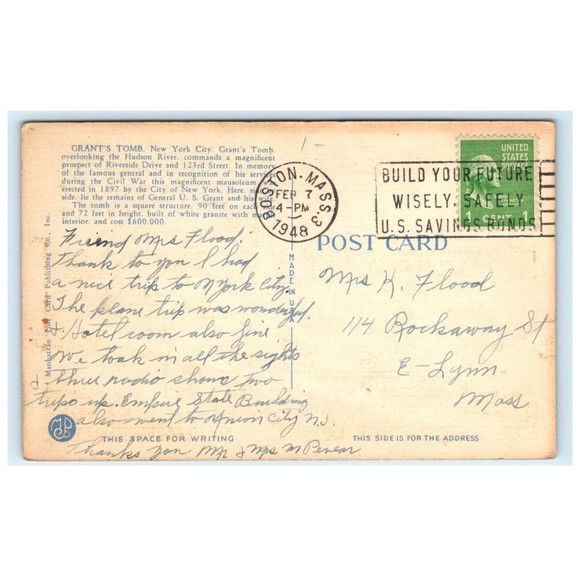 GRANT'S TOMB, New York City. Grant's Tomb,
overlooking the Hudson River, commands a magnificent
prospect of Riverside Drive and 123rd Street. In memory
of the famous general and in recognition of his service
during the Civil War this magnificent mausoleum
erected in 1897 by the City of New York. Here,
side, lie the remains of General U. S. Grant and his
The tomb is a square structure. 90 feet on each
and 72 feet in height, built of white granite with
interior, and cost $600,000.
BOSTON, MASS. 3
FEB 7
4-PM
1948
BUILD YOUR FUTURE
WISELY, SAFELY
U.S. SAVINGS BONDS
UNITED
STATES
POSTAGE
1 CENT 1
POST CARD
Friend Mrs Flood;
Thank to you I had
a nice trip to N York City.
The plane trip was wonderful.
& Hotel room also fine
We took in all the sights
three radio shows two
trips up. Empire State Building
also went to Union City N.J.
Thanks you Mr & Mrs
Mrs K. Flood
114 Rockaway St
E-Lynn
Mass
MADE IN U.S.A.
Manhattan Post Card Publishing Co., Inc.
THIS SPACE FOR WRITING
THIS SIDE IS FOR THE ADDRESS